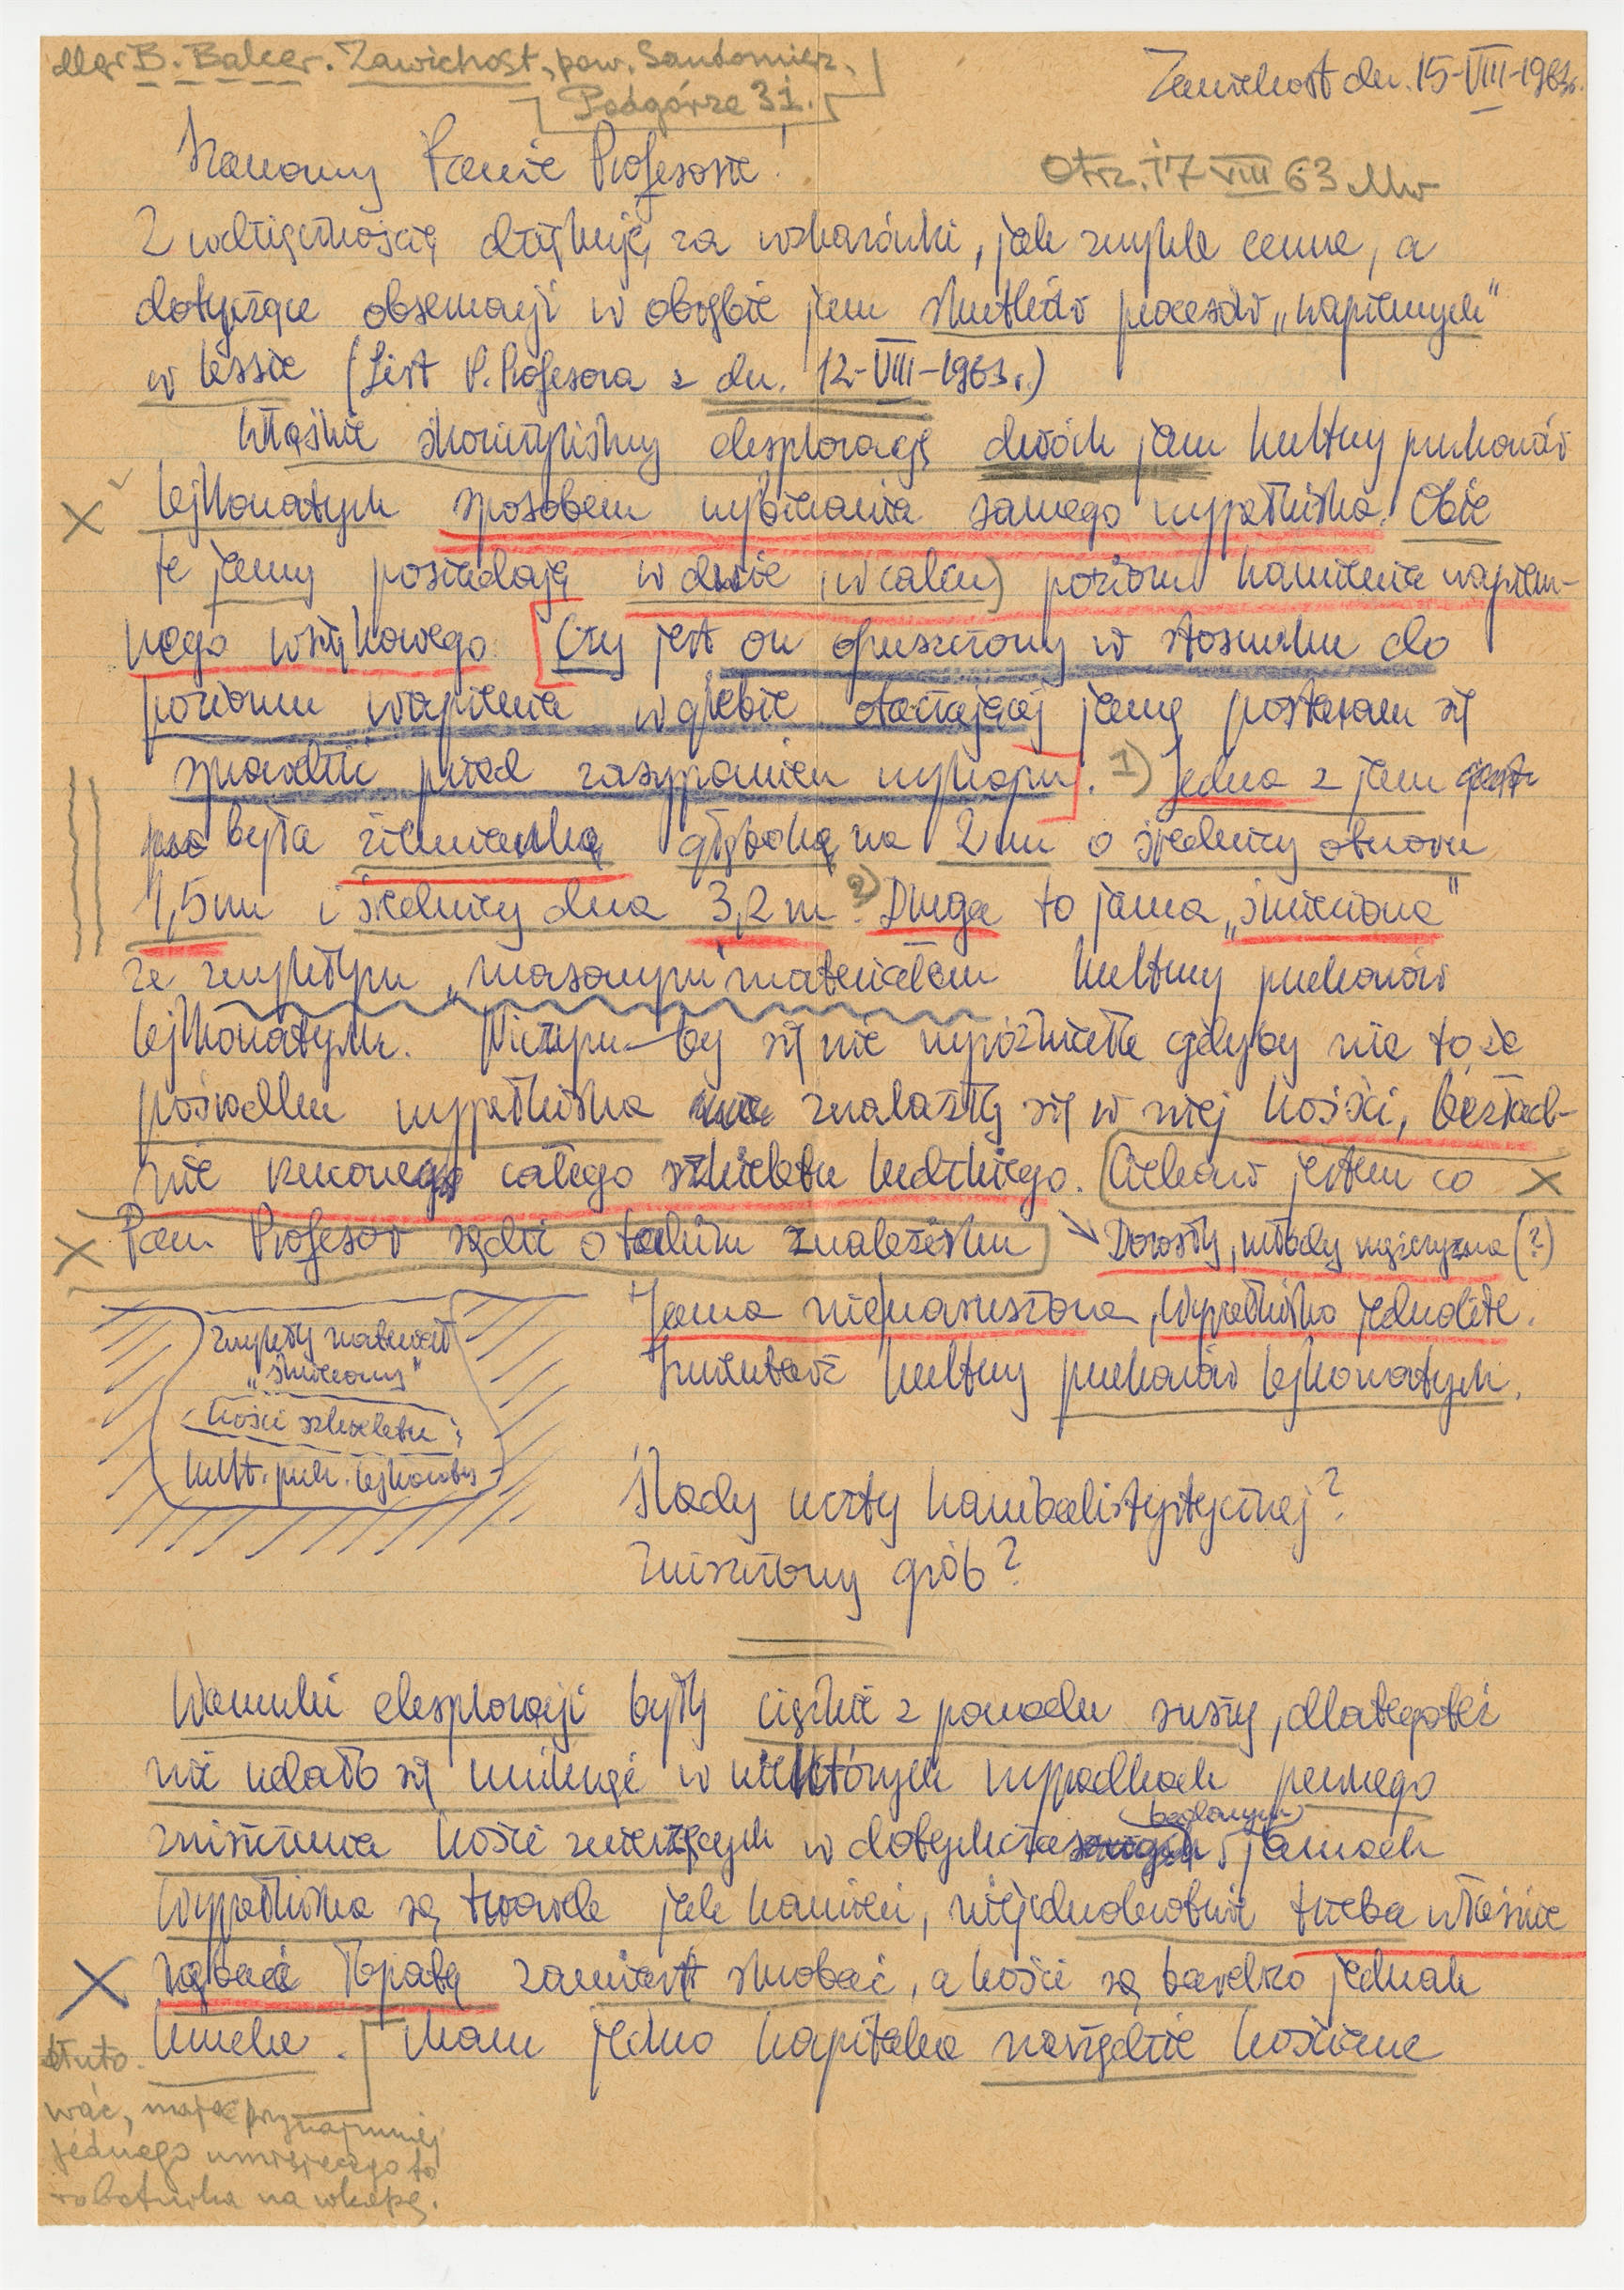 Mgr B. Balcer. Zawichost, pow. Sandomierz,
Podgórze 31.
Zawichost dn. 15-VIII-1963r.
Szanowny Panie Profesorze!
Otrz. 17 VIII 63
Z wdzięcznością dziękuję za wskazówki, jak zwykle cenne, a
dotyczące obserwacji w obrębie jam skutków procesów „wapiennych"
w lessie (List P. Profesora z dn. 12-VIII-1963r.)
Właśnie skończyliśmy eksplorację dwóch jam kultury pucharów
lejkowatych sposobem wybierania samego wypełniska. Obie
te jamy posiadają w dnie (w calcu) poziom kamienia wapien-
nego wsiękowego. Czy jest on opuszczony w stosunku do
poziomu wapienia w glebie otaczającej jamę postaram się
sprawdzić przed zasypaniem wykopu. 1) Jedna z jam
była ziemianką głęboką na 2 m o średnicy otworu
1,5 m i średnicy dna 3,2 m. 2) Druga to jama „śmieciowa"
ze zwykłym „masowym" materiałem kultury pucharów
lejkowatych. Niczym by się nie wyróżniała gdyby nie to, że
pośrodku wypełniska znalazły się w niej kości, bezład-
nie rzuconego całego szkieletu ludzkiego. Ciekaw jestem co
Pan Profesor sądzi o takim znalezisku Dorosły, młody mężczyzna (?)
Jama nienaruszona, wypełnisko jednolite.
Inwentarz kultury pucharów lejkowatych.
zwykły materiał
„śmieciowy"
kości szkieletu
kult. puch. lejkowatych
Ślady uczty kanibalistystycznej?
Zniszczony grób?
Warunki eksploracji były ciężkie z powodu suszy, dlategoteż
nie udało się uniknąć w niektórych wypadkach pewnego
zniszczenia kości zwierzęcych w dotychczas
badanych
jamach
Wypełniska są twarde jak kamień, niejednokrotnie trzeba właśnie
rąbać łopatą zamiast skrobać, a kości są bardzo jednak
kruche. Mam jedno kapitalne narzędzie kościane
dłuto-
wać, mając przynajmniej
jednego umiejącego to
robotnika na wkopę.